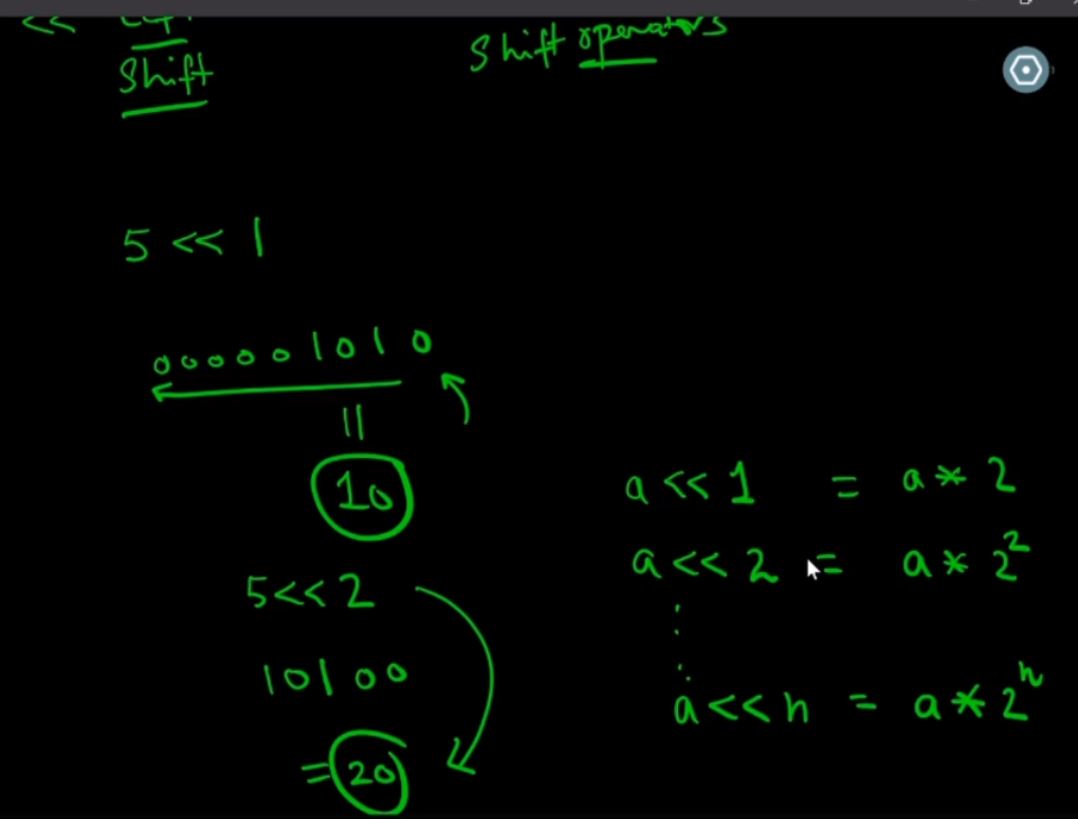 <<
Shift
Shift operators
5 << 1
000001010
||
10
5<<2
10100
=20
a << 1 = a * 2
a << 2 = a * 2²
⋮
a << n = a * 2ⁿ